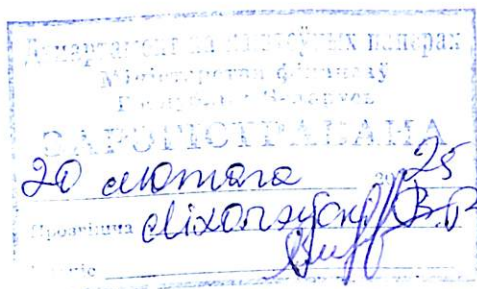 Дэпартамент па каштоўных паперах
Міністэрства фінансаў
Рэспублікі Беларусь
ЗАРЭГІСТРАВАНА
20 лютага 2025
Прозвішча